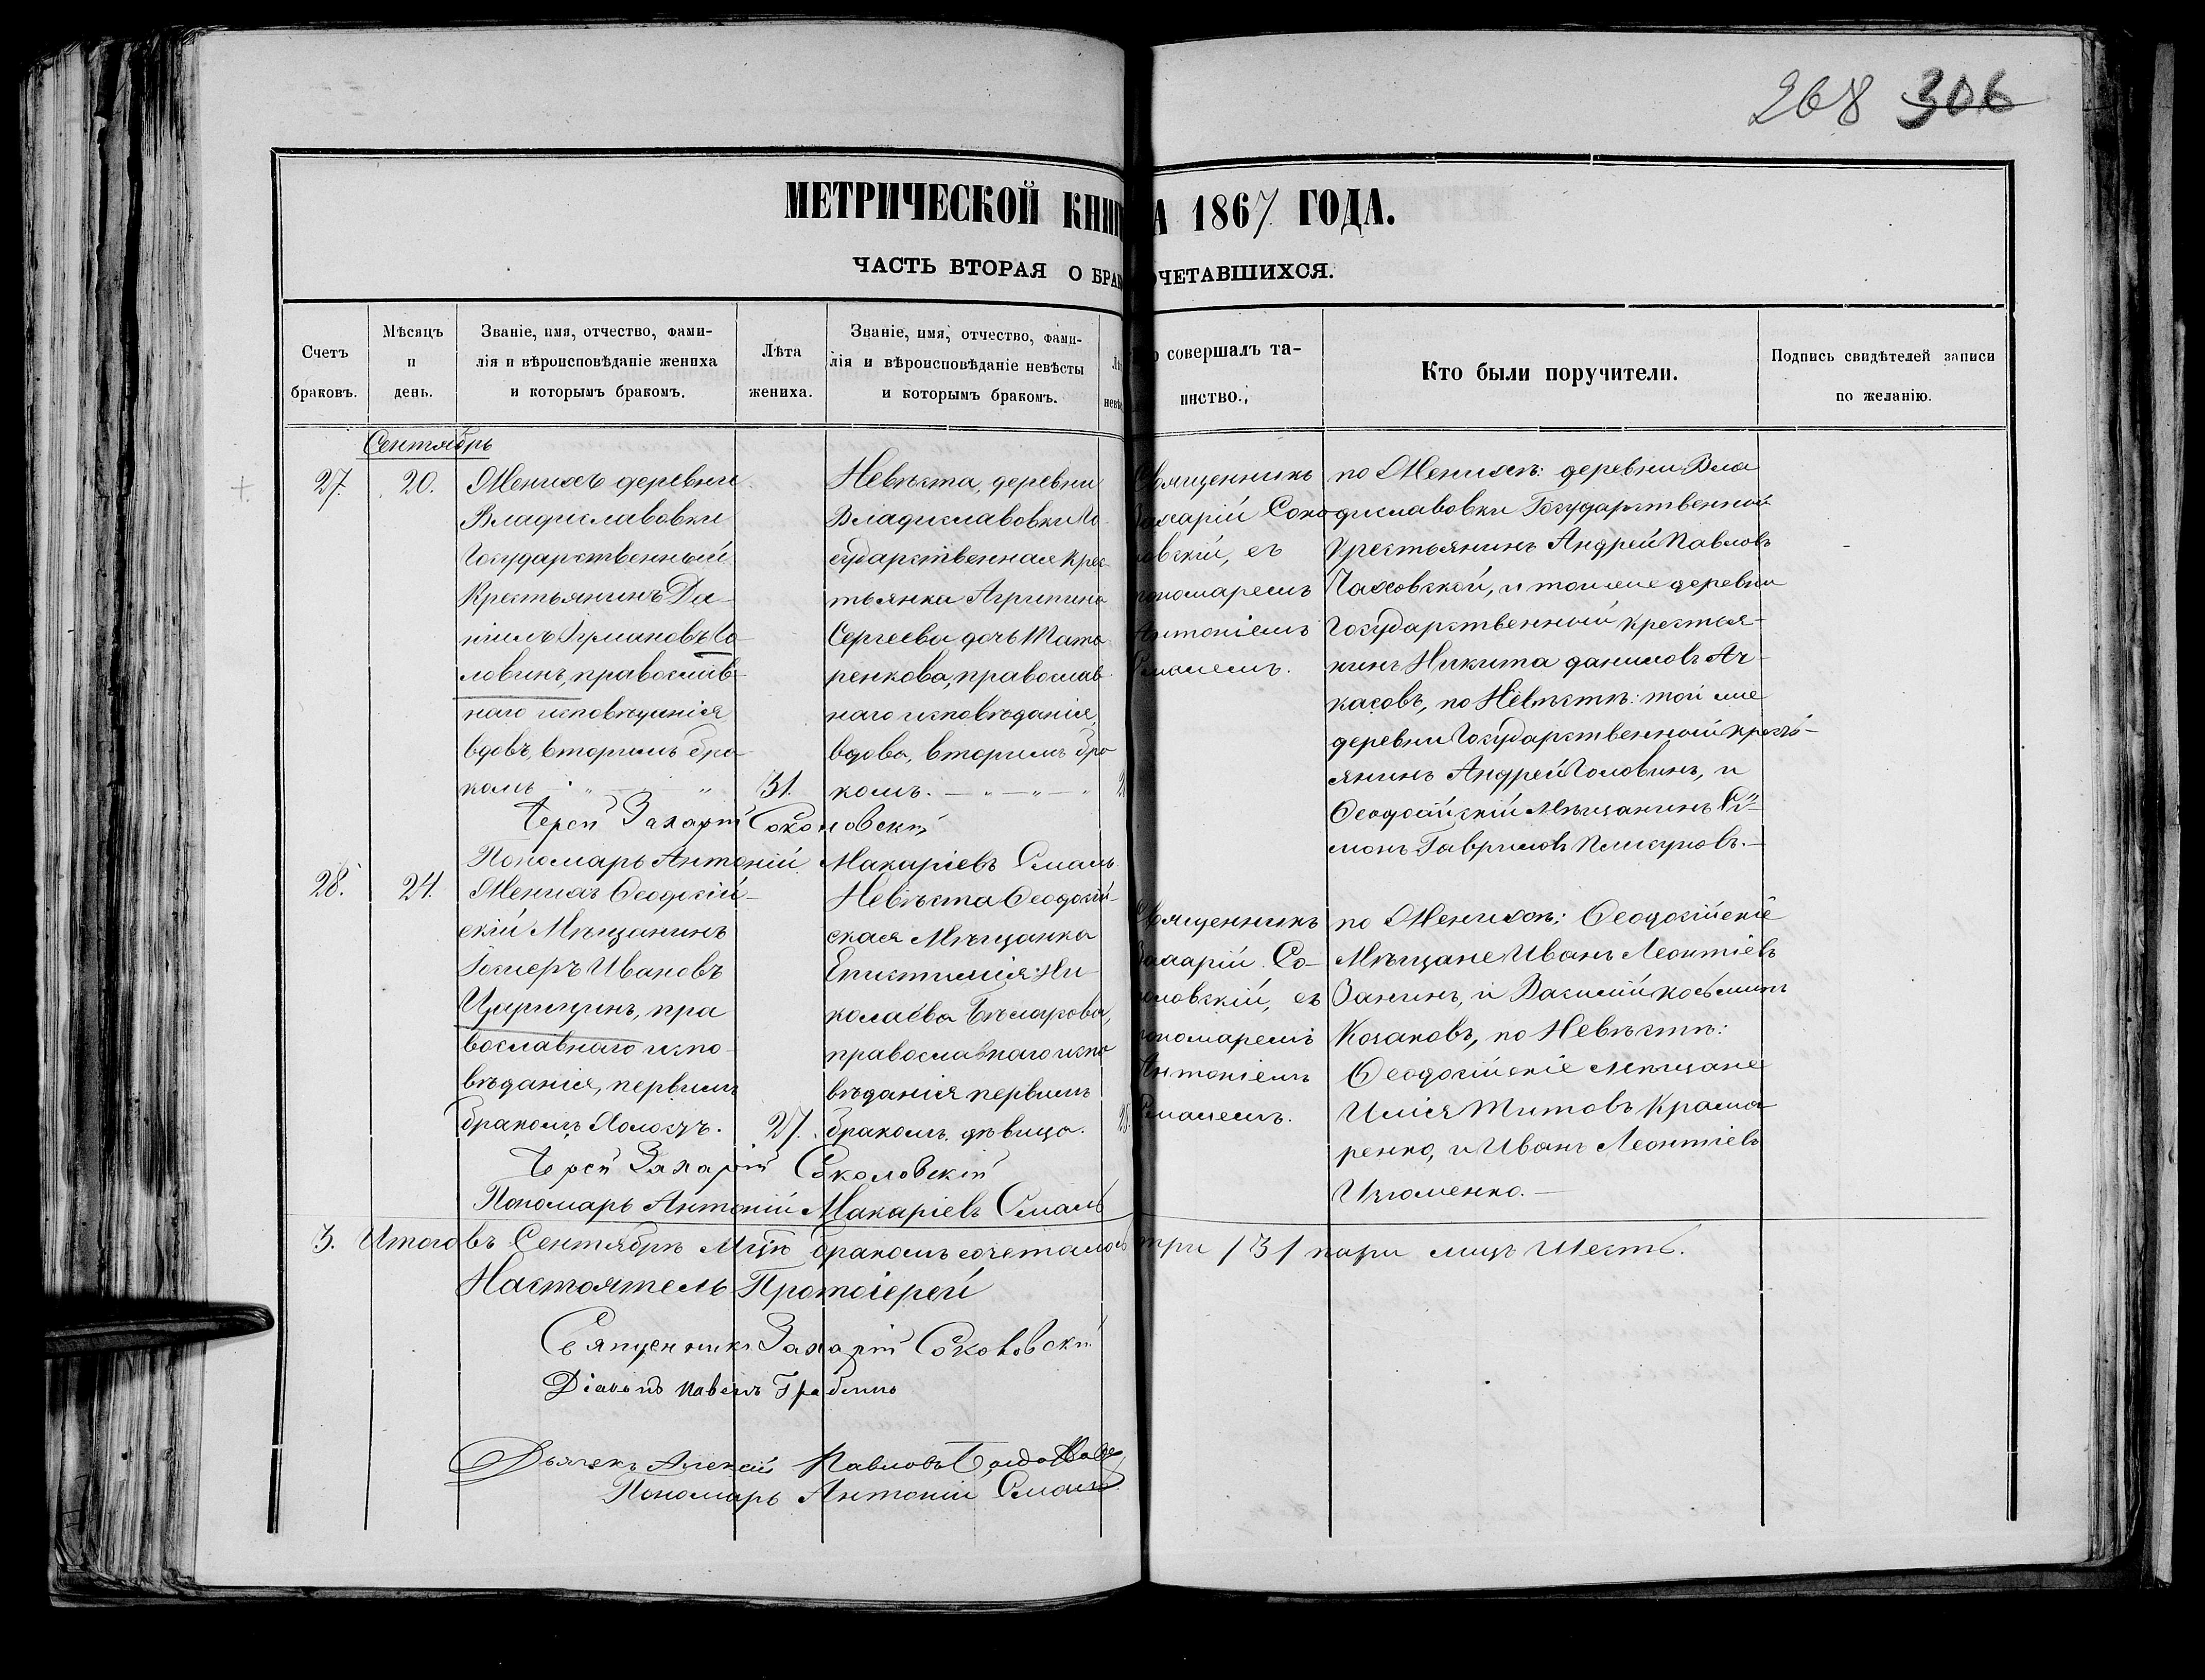 268 306
МЕТРИЧЕСКОЙ КНИГ
А 1867 ГОДА.
ЧАСТЬ ВТОРАЯ О БРАК
ОЧЕТАВШИХСЯ.
Счетъ браковъ.
Мѣсяцъ и день.
Званіе, имя, отчество, фами-
лія и вѣроисповѣданіе жениха
и которымъ бракомъ.
Лѣта жениха.
Званіе, имя, отчество, фами-
лія и вѣроисповѣданіе невѣсты
и которымъ бракомъ.
о совершалъ та-
инство.
Кто были поручители.
Подпись свидѣтелей записи
по желанію.
Сентябрь
27. 20.
Женихъ деревни
Владиславовки
Государственный
Крестьянинъ Да-
ніилъ Го-
ловинъ, православ-
наго исповѣданія
вдовъ, вторымъ бра-
комъ
31.
Невѣста, деревни
Владиславовки Го-
сударственная крес-
тьянка Агрипина
Сергеева дочь Тата-
ренкова, православ-
наго исповѣданія,
вдова, вторымъ бра
комъ.
Священникъ
Захарій Соко-
ловскій, съ
пономаремъ
Антоніемъ
по Женихѣ: деревни Вла
диславовки Государственной
Крестьянинъ Андрей Павловъ
и тойже деревни
Государственный крестья-
нинъ Никита Даниловъ Ач-
касовъ, по Невѣстѣ: той же
деревни Государственный кресть-
янинъ Андрей Головинъ, и
Ѳеодосійскій Мѣщанинъ Си-
монъ Гавриловъ
Іерей Захарій Соколовскій
Пономарь Антоній Макаріевъ
28. 24.
Женихъ Ѳеодосій-
скій Мѣщанинъ
Ивановъ
Царицинъ, пра
вославнаго испо-
вѣданія, первымъ
бракомъ Холостъ.
27.
Невѣста Ѳеодосій-
ская Мѣщанка
Епистимія Ни-
колаева
православнаго испо
вѣданія первымъ
бракомъ. дѣвица.
25.
Священникъ
Захарій Со-
коловскій, съ
пономаремъ
Антоніемъ
по Женихѣ: Ѳеодосійскіе
Мѣщане Иванъ Леонтіевъ
Занинъ, и Василій Косьминъ
Козаковъ, по Невѣстѣ:
Ѳеодосійскіе мѣщане
Илія Титовъ Крама
ренко, и Иванъ Леонтіевъ
Іерей Захарій Соколовскій
Пономарь Антоній Макаріевъ
3. Итого въ Сентябрѣ Мцѣ бракомъ сочеталось три /3/ пары лицъ шесть.
Настоятель Протоіерей
Священникъ Захарій Соколовскій
Діаконъ Павелъ
Дьячекъ Алексій Павловъ
Пономарь Антоній